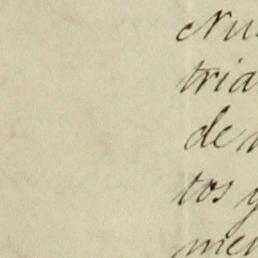 Nu
tria
de
tos y
men